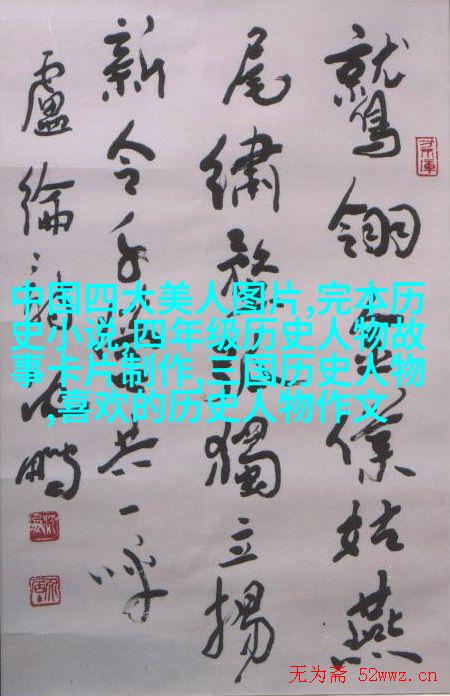 鷲翎金僕姑燕
尾繡蝥弧獨立揚
新令千營共一呼
盧綸詩 鵬
中国四大美人图片,完本历
史小说,四年级历史人物故
事卡片制作,三国历史人物
,喜欢的历史人物作文
无为斋 52wwz.cn